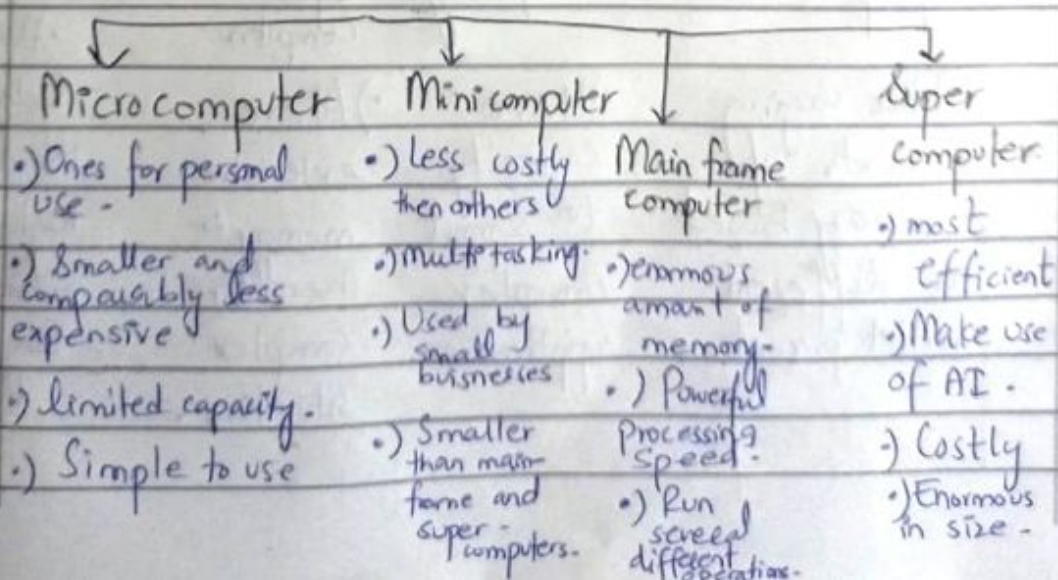 Microcomputer
•) Ones for personal
use -
•) Smaller and
comparably less
expensive
•) limited capacity.
•) Simple to use
Minicomputer
•) less costly
then onthers
•) multetasking.
•) Used by
small
buisnesses
•) Smaller
than main-
frame and
super-
computers.
Main frame
computer
•) enormous
amount of
memory-
•) Powerful
Processing
Speed.
•) Run
several
different
operations.
Super
computer.
•) most
efficient
•) Make use
of AI.
•) Costly
•) Enormous
in size -